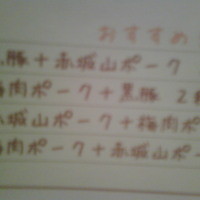 おすすめ
豚+赤城山ポーク
梅肉ポーク+黒豚 2
城山ポーク+梅肉
肉ポーク+赤城山ポー